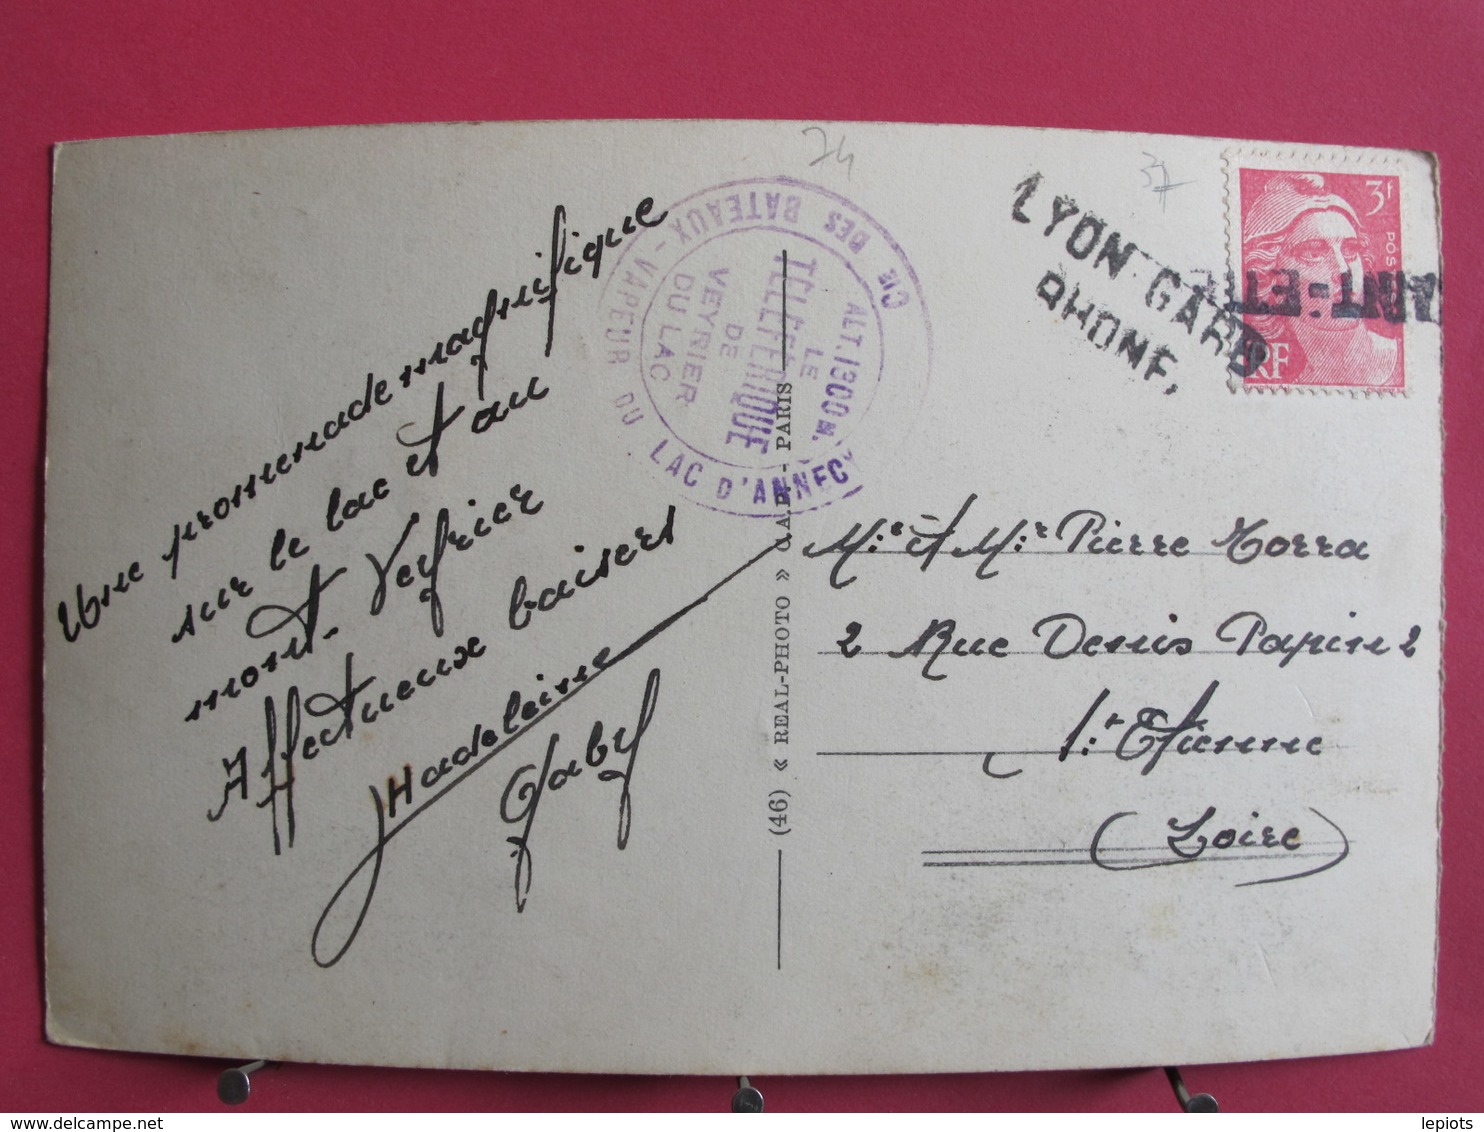 Une promenade magnifique
sur le lac et au
mont-Veyrier
Affectueux baisers
Madeleine
Gaby
74
37
CIE DES BATEAUX - VAPEUR DU LAC D'ANNECY
ALT. 1300 M.
LE
TELEFERIQUE
DE
VEYRIER
DU LAC
(46) « REAL-PHOTO » C.A.P. - PARIS
LYON-GARE
RHONE,
3F
POS
RF
Me et Mr Pierre Torra
2 Rue Denis Papin 2
St Etienne
(Loire)
lepiots